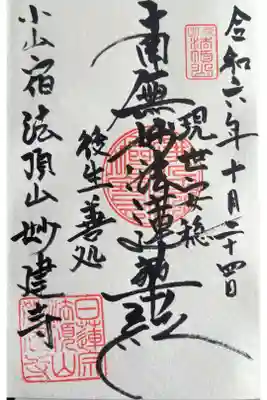 令和六年十月二十四日
現世安穏
南無妙法蓮華経
後生善処
小山宿 法頂山 妙建寺
日蓮宗
法頂山